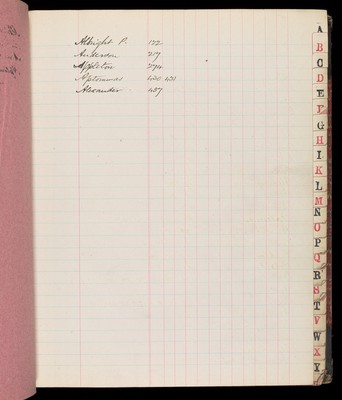 Albright P. 122
Anderson 217
Appleton 274
Aptommas 430 431
Alexander 457
A
B
C
D
E
F
G
H
I
K
L
M
N
O
P
Q
R
S
T
V
W
X
Y